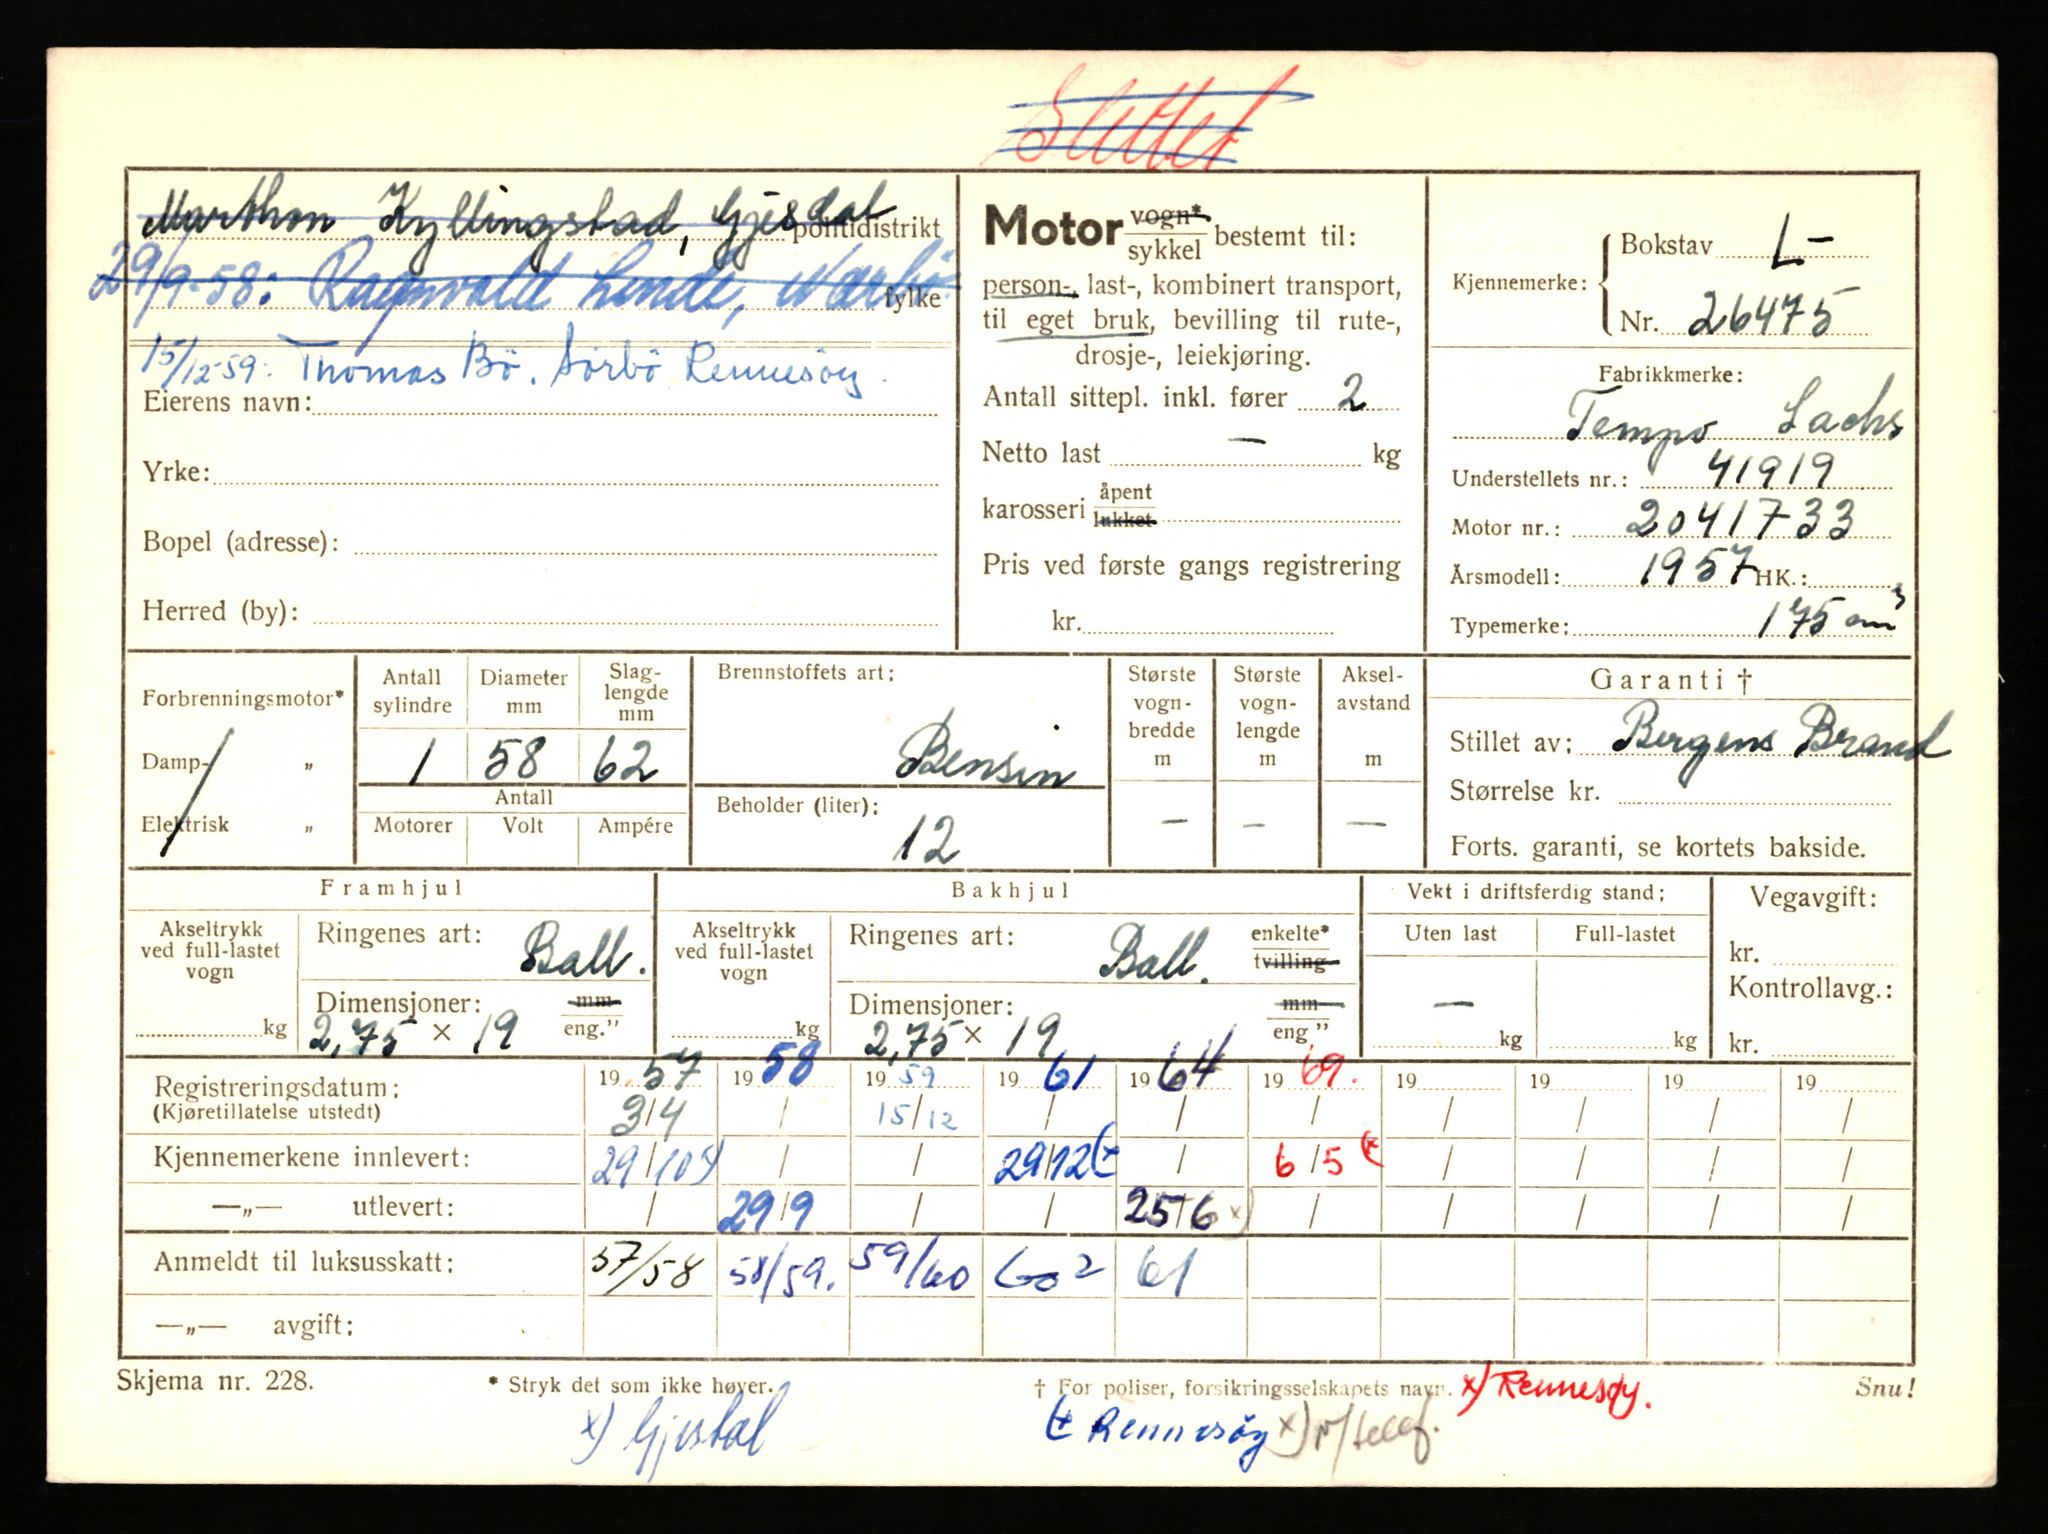 Slettet
Marthon Kyllingstad, Gjesdal politidistrikt
29/9-58: Ragnvald Linde, Nærbø fylke
15/12-59: Thomas Bö, Sörbö Rennesöy.
Eierens navn:
Yrke:
Bopel (adresse):
Herred (by):
Motor vogn* / sykkel bestemt til:
person-, last-, kombinert transport,
til eget bruk, bevilling til rute-,
drosje-, leiekjøring.
Antall sittepl. inkl. fører 2
Netto last — kg
karosseri åpent / lukket
Pris ved første gangs registrering
kr.
Kjennemerke: Bokstav L-
Nr. 26475
Fabrikkmerke:
Tempo Sachs
Understellets nr.: 41919
Motor nr.: 2041733
Årsmodell: 1957 HK.:
Typemerke: 175 cm³
Forbrenningsmotor*
Damp- „
Elektrisk „
Antall sylindre 1
Diameter mm 58
Slaglengde mm 62
Antall
Motorer Volt Ampére
Brennstoffets art: Bensin
Beholder (liter): 12
Største vognbredde m —
Største vognlengde m —
Akselavstand m —
Garanti †
Stillet av: Bergens Brand
Størrelse kr.
Forts. garanti, se kortets bakside.
Framhjul
Akseltrykk ved full-lastet vogn kg
Ringenes art: Ball.
Dimensjoner: mm / eng."
2,75 × 19
Bakhjul
Akseltrykk ved full-lastet vogn kg
Ringenes art: Ball. enkelte* / tvilling
Dimensjoner: mm / eng."
2,75 × 19
Vekt i driftsferdig stand:
Uten last — kg
Full-lastet kg
Vegavgift:
kr.
Kontrollavg.:
kr.
Registreringsdatum: 19 57 19 58 19 59 19 61 19 64 19 69. 19 19 19 19
(Kjøretillatelse utstedt) 3/4 / 15/12 / / / / / / /
Kjennemerkene innlevert: 29/10 x) / / 29/12 (+ / 6/5 (x / / / /
—„— utlevert: / 29/9 / / 25/6 x) / / / / /
Anmeldt til luksusskatt: 57/58 58/59. 59/60 60² 61
—„— avgift:
Skjema nr. 228. * Stryk det som ikke høver. † For poliser, forsikringsselskapets navn. x) Rennesöy. Snu!
x) Gjesdal (+ Rennesöy x) n/telef.